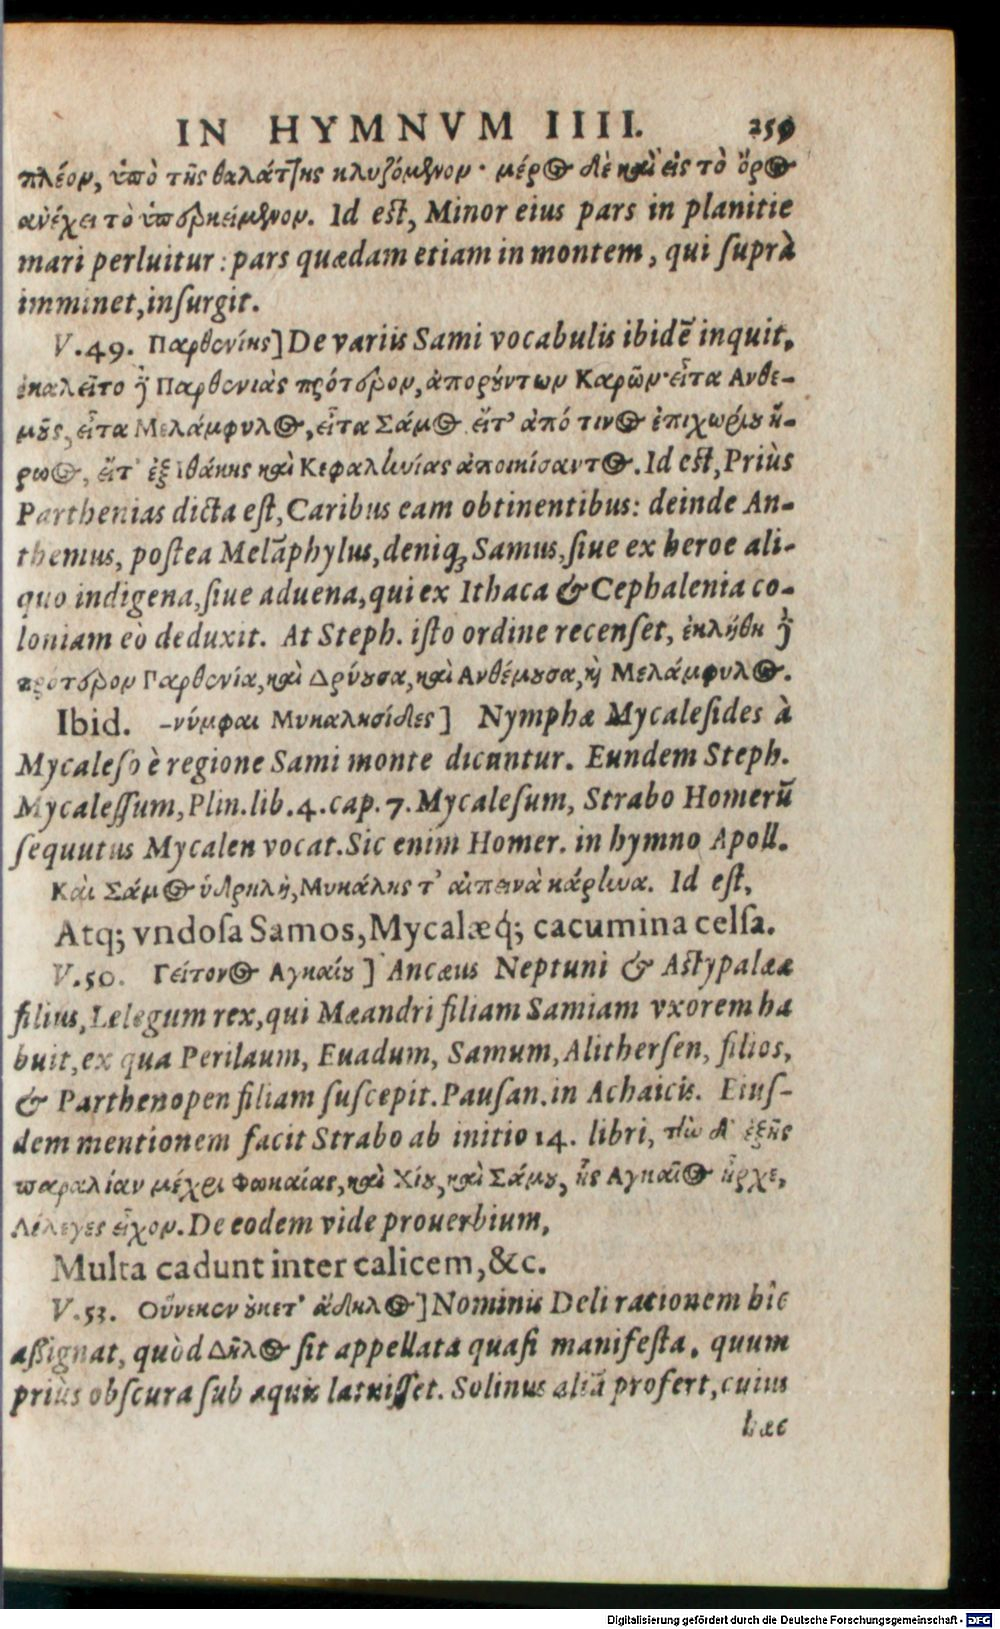 IN HYMNVM IIII. 259
πλέον, ὑπὸ τῆς θαλάττης κλυζόμενον· μέρος δὲ καὶ εἰς τὸ ὄρος
ἀνέχει τὸ ὑπερκείμενον. Id est, Minor eius pars in planitie
mari perluitur: pars quædam etiam in montem, qui suprà
imminet, insurgit.
V.49. Παρθενίης] De variis Sami vocabulis ibidē inquit,
ἐκαλεῖτο ἢ Παρθενιὰς πρότερον, ἀπορούντων Καρῶν· εἶτα Ανθε-
μοῦς, εἶτα Μελάμφυλος, εἶτα Σάμος εἴτ' ἀπό τινος ἐπιχωρίου ἥ-
ρωος, εἴτ' ἐξ ιθάκης καὶ Κεφαλληνίας ἀποικίσαντος. Id est, Priùs
Parthenias dicta est, Caribus eam obtinentibus: deinde An-
themus, postea Melāphylus, deniq; Samus, siue ex heroe ali-
quo indigena, siue aduena, qui ex Ithaca & Cephalenia co-
loniam eò deduxit. At Steph. isto ordine recenset, ἐκλήθη ἢ
πρότερον Παρθενία, καὶ Δρύουσα, καὶ Ανθέμουσα, ἢ Μελάμφυλος.
Ibid. –νύμφαι Μυκαλησίδες] Nymphæ Mycalesides à
Mycaleso è regione Sami monte dicuntur. Eundem Steph.
Mycalessum, Plin. lib. 4. cap. 7. Mycalesum, Strabo Homerū
sequutus Mycalen vocat. Sic enim Homer. in hymno Apoll.
Καὶ Σάμος ὑδρηλὴ, Μυκάλης τ' αἰπεινὰ κάρηνα. Id est,
Atq; vndosa Samos, Mycalæq́; cacumina celsa.
V.50. Γείτονος Αγκαίου] Ancæus Neptuni & Astypalææ
filius, Lelegum rex, qui Mæandri filiam Samiam vxorem ha
buit, ex qua Perilaum, Euadum, Samum, Alithersen, filios,
& Parthenopen filiam suscepit. Pausan. in Achaicis. Eius-
dem mentionem facit Strabo ab initio 14. libri, τὴν δ' ἑξῆς
παραλίαν μέχρι Φωκαίας, καὶ Χίου, καὶ Σάμου, ἧς Αγκαῖος ἦρχε,
Λέλεγες εἶχον. De eodem vide prouerbium,
Multa cadunt inter calicem, &c.
V.53. Οὕνεκεν οὐκετ' ἄδηλος] Nominis Deli rationem hîc
assignat, quòd Δῆλος sit appellata quasi manifesta, quum
priùs obscura sub aquis latuisset. Solinus aliā profert, cuius
hæc
Digitalisierung gefördert durch die Deutsche Forschungsgemeinschaft - DFG